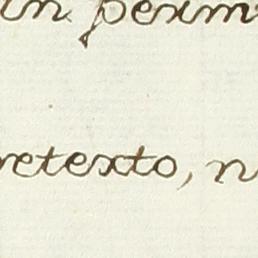 un perm
retexto, n